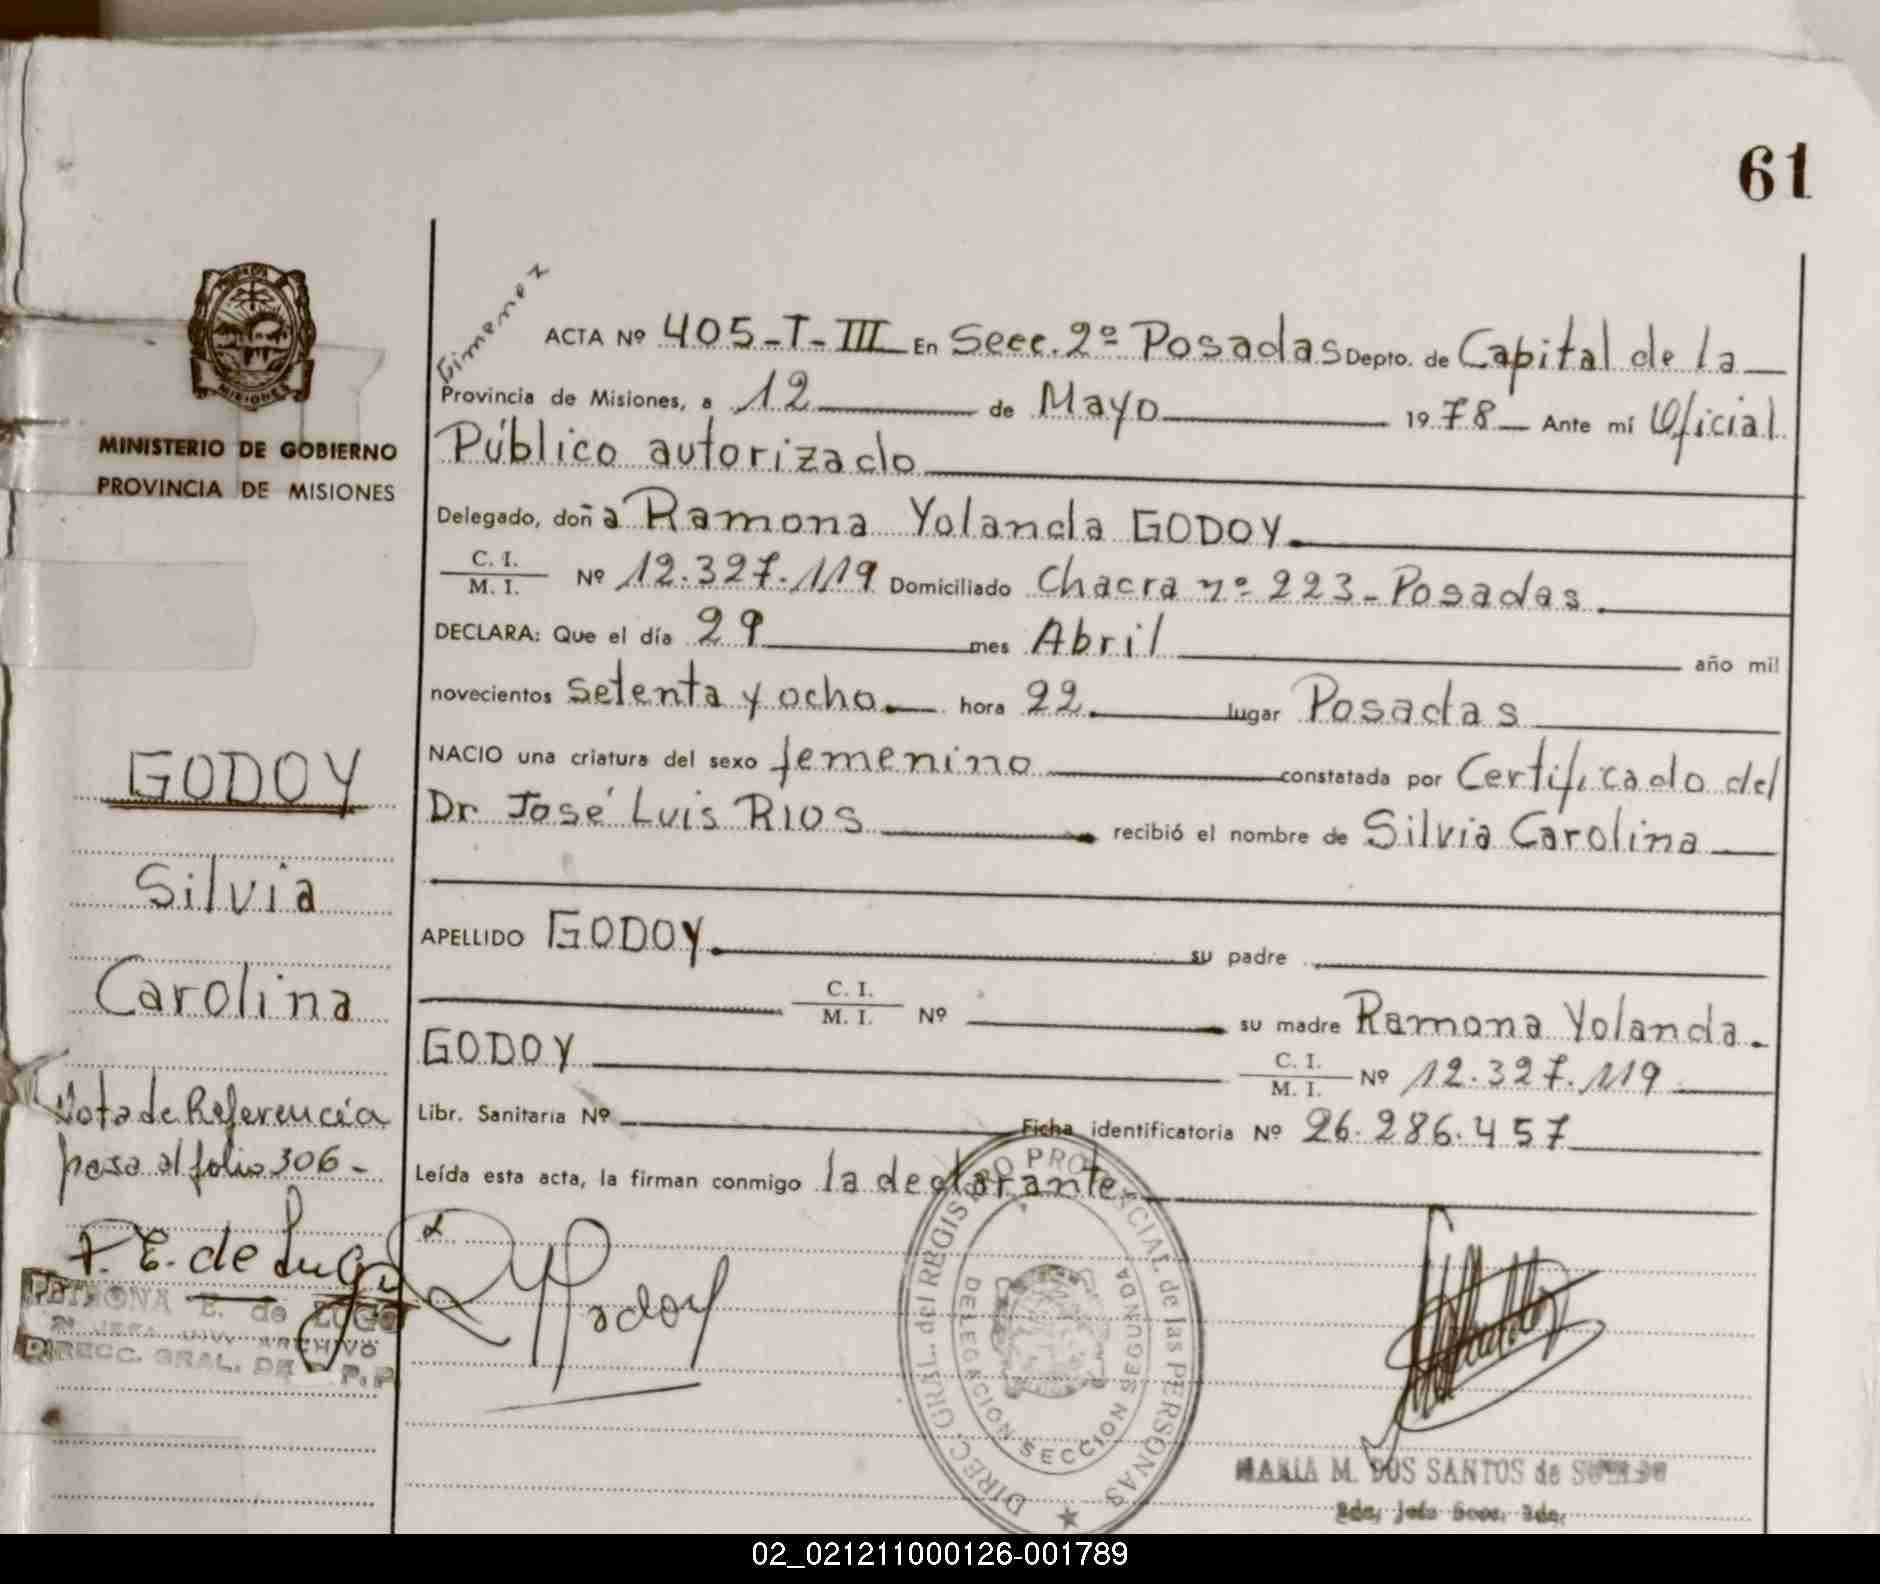 61
Gimenez
ACTA Nº 405-T-III En Secc. 2º Posadas Depto. de Capital de la
Provincia de Misiones, a 12 de Mayo 1978 Ante mí Oficial
Público autorizado
Delegado, doña Ramona Yolanda GODOY.
C. I.
M. I. Nº 12.327.119 Domiciliado Chacra nº 223-Posadas.
DECLARA: Que el día 29 mes Abril año mil
novecientos setenta y ocho. hora 22. lugar Posadas
NACIO una criatura del sexo femenino constatada por Certificado del
Dr José Luis RIOS recibió el nombre de Silvia Carolina
APELLIDO GODOY. su padre
C. I.
M. I. Nº su madre Ramona Yolanda.
GODOY C. I.
M. I. Nº 12.327.119
Libr. Sanitaria Nº Ficha identificatoria Nº 26.286.457
Leída esta acta, la firman conmigo la declarante
MINISTERIO DE GOBIERNO
PROVINCIA DE MISIONES
MISIONES
GODOY
Silvia
Carolina
Nota de Referencia
pasa al folio 306-
P. E. de Lugo
PETRONA E. de LUGO
ARCHIVO
DIRECC. GRAL. DE P. P
RYGodoy
DIREC. GRAL. del REGISTRO PROVINCIAL de las PERSONAS
DELEGACION SECCION SEGUNDA
MARIA M. DOS SANTOS de
02_021211000126-001789